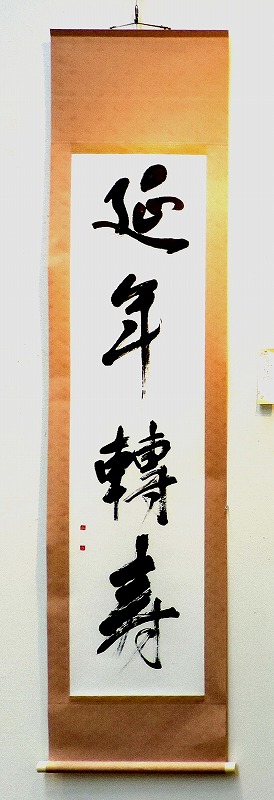 延年轉寿